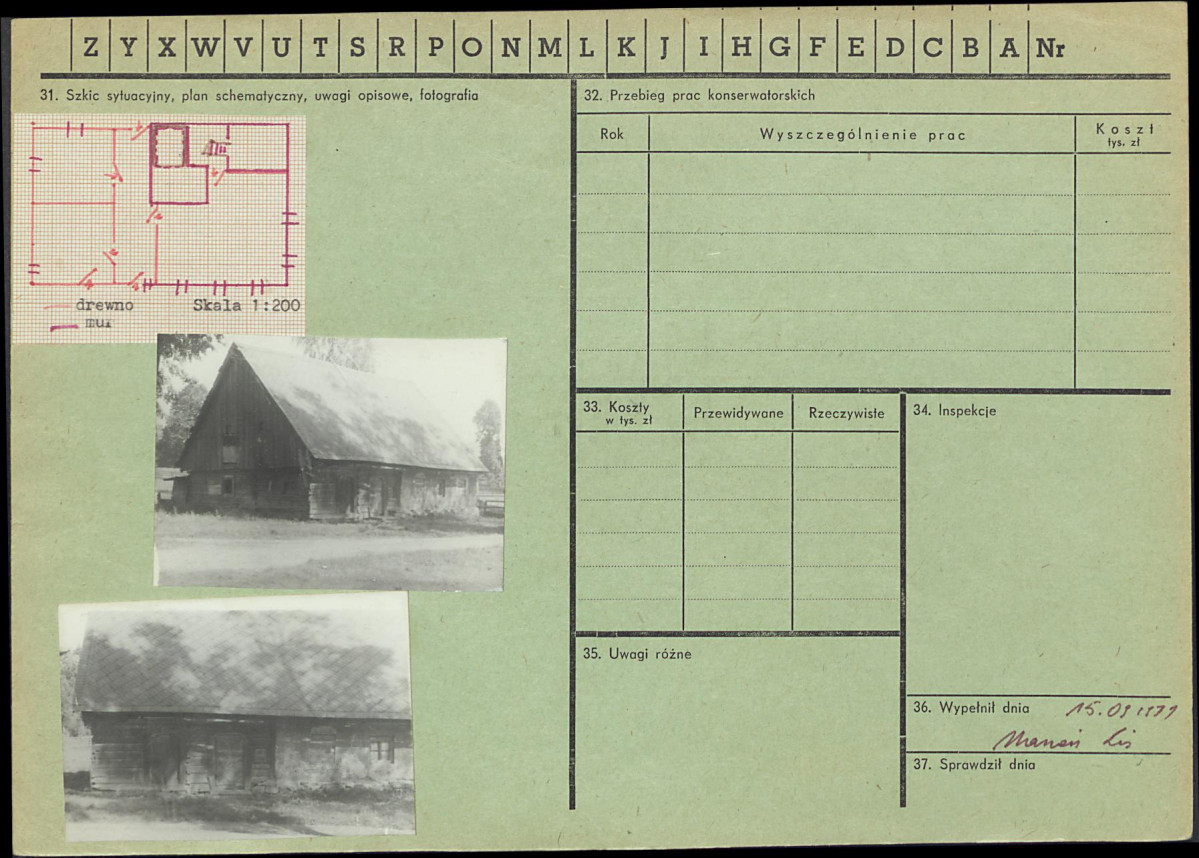 Z Y X W V U T S R P O N M L K J I H G F E D C B A Nr
31. Szkic sytuacyjny, plan schematyczny, uwagi opisowe, fotografia
drewno Skala 1:200
mur
32. Przebieg prac konserwatorskich
Rok Wyszczególnienie prac Koszt
tys. zł
33. Koszty
w tys. zł
Przewidywane Rzeczywiste
34. Inspekcje
35. Uwagi różne
36. Wypełnił dnia 15.09 1979
Lis
37. Sprawdził dnia